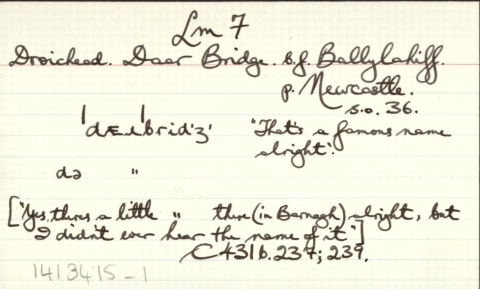 Lm 7
Droichead. Daar Bridge. s.f. Ballylahiff.
p. Newcastle.
s.o. 36.
ˈdæɹˈbridʹʒ "That's a famous name
alright".
də "
["Yes, theres a little " there (in Barnagh) alright, but
I didn't ever hear the name of it"]
C 431 b. 237; 239.
1413415-1